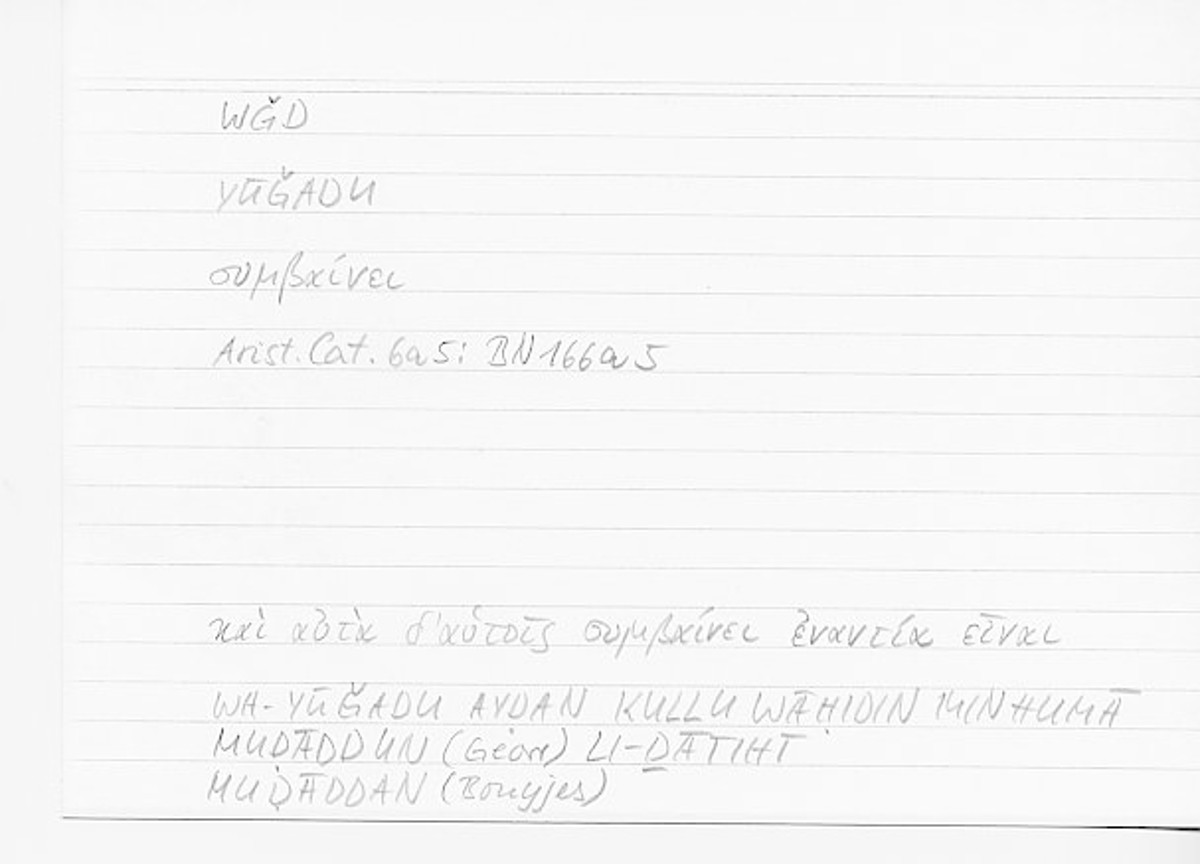 WǦD
YŪǦADU
συμβαίνει
Arist. Cat. 6a5: BN166a5
καὶ αὐτὰ δ'αὑτοῖς συμβαίνει ἐναντία εἶναι
WA-YŪǦADU AYḌAN KULLU WĀḤIDIN MINHUMĀ
MUḌĀDDUN (Géorr) LI-ḎĀTIHĪ
MUḌĀDDAN (Bouyjes)